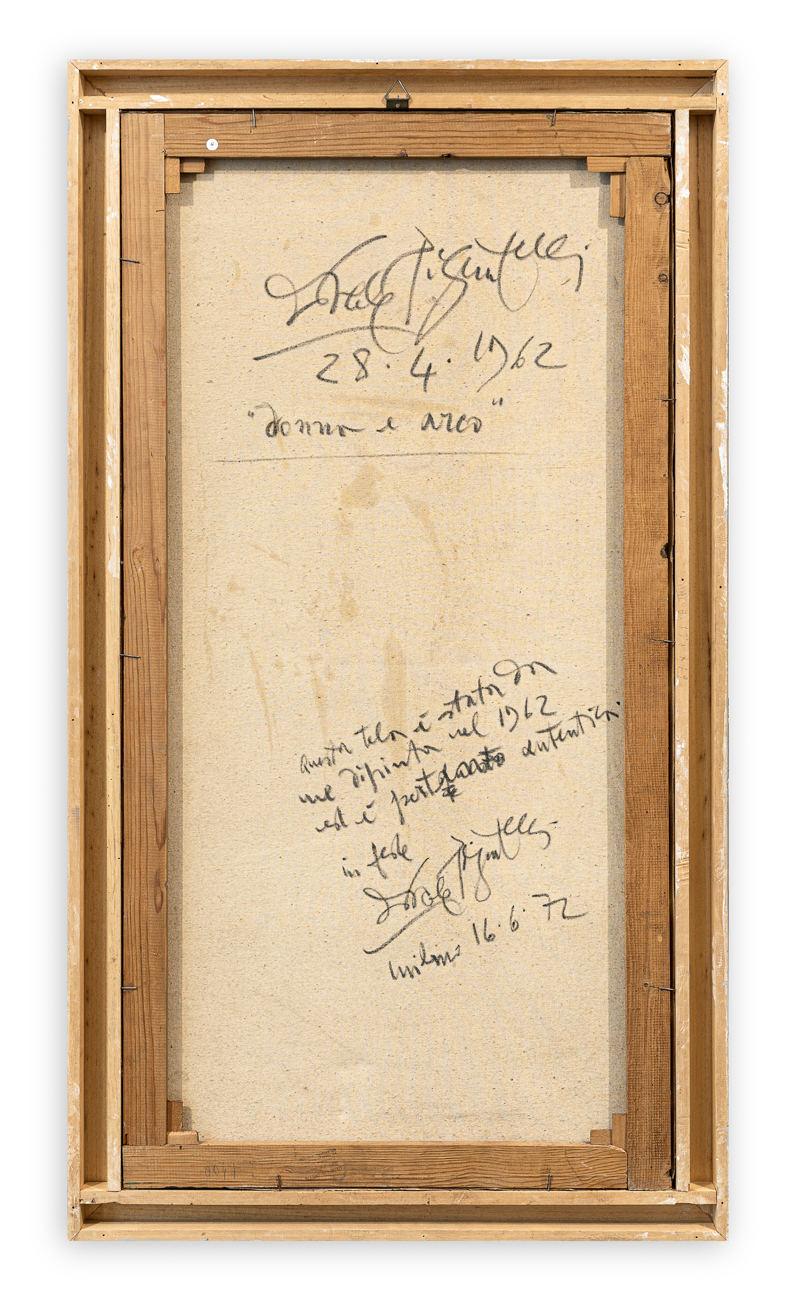 Dorole Pignatelli
28.4.1962
"donna e arco"
questa tela è stata da
me dipinta nel 1962
ed è autentica
in fede
Pignatelli
milano 16.6.72